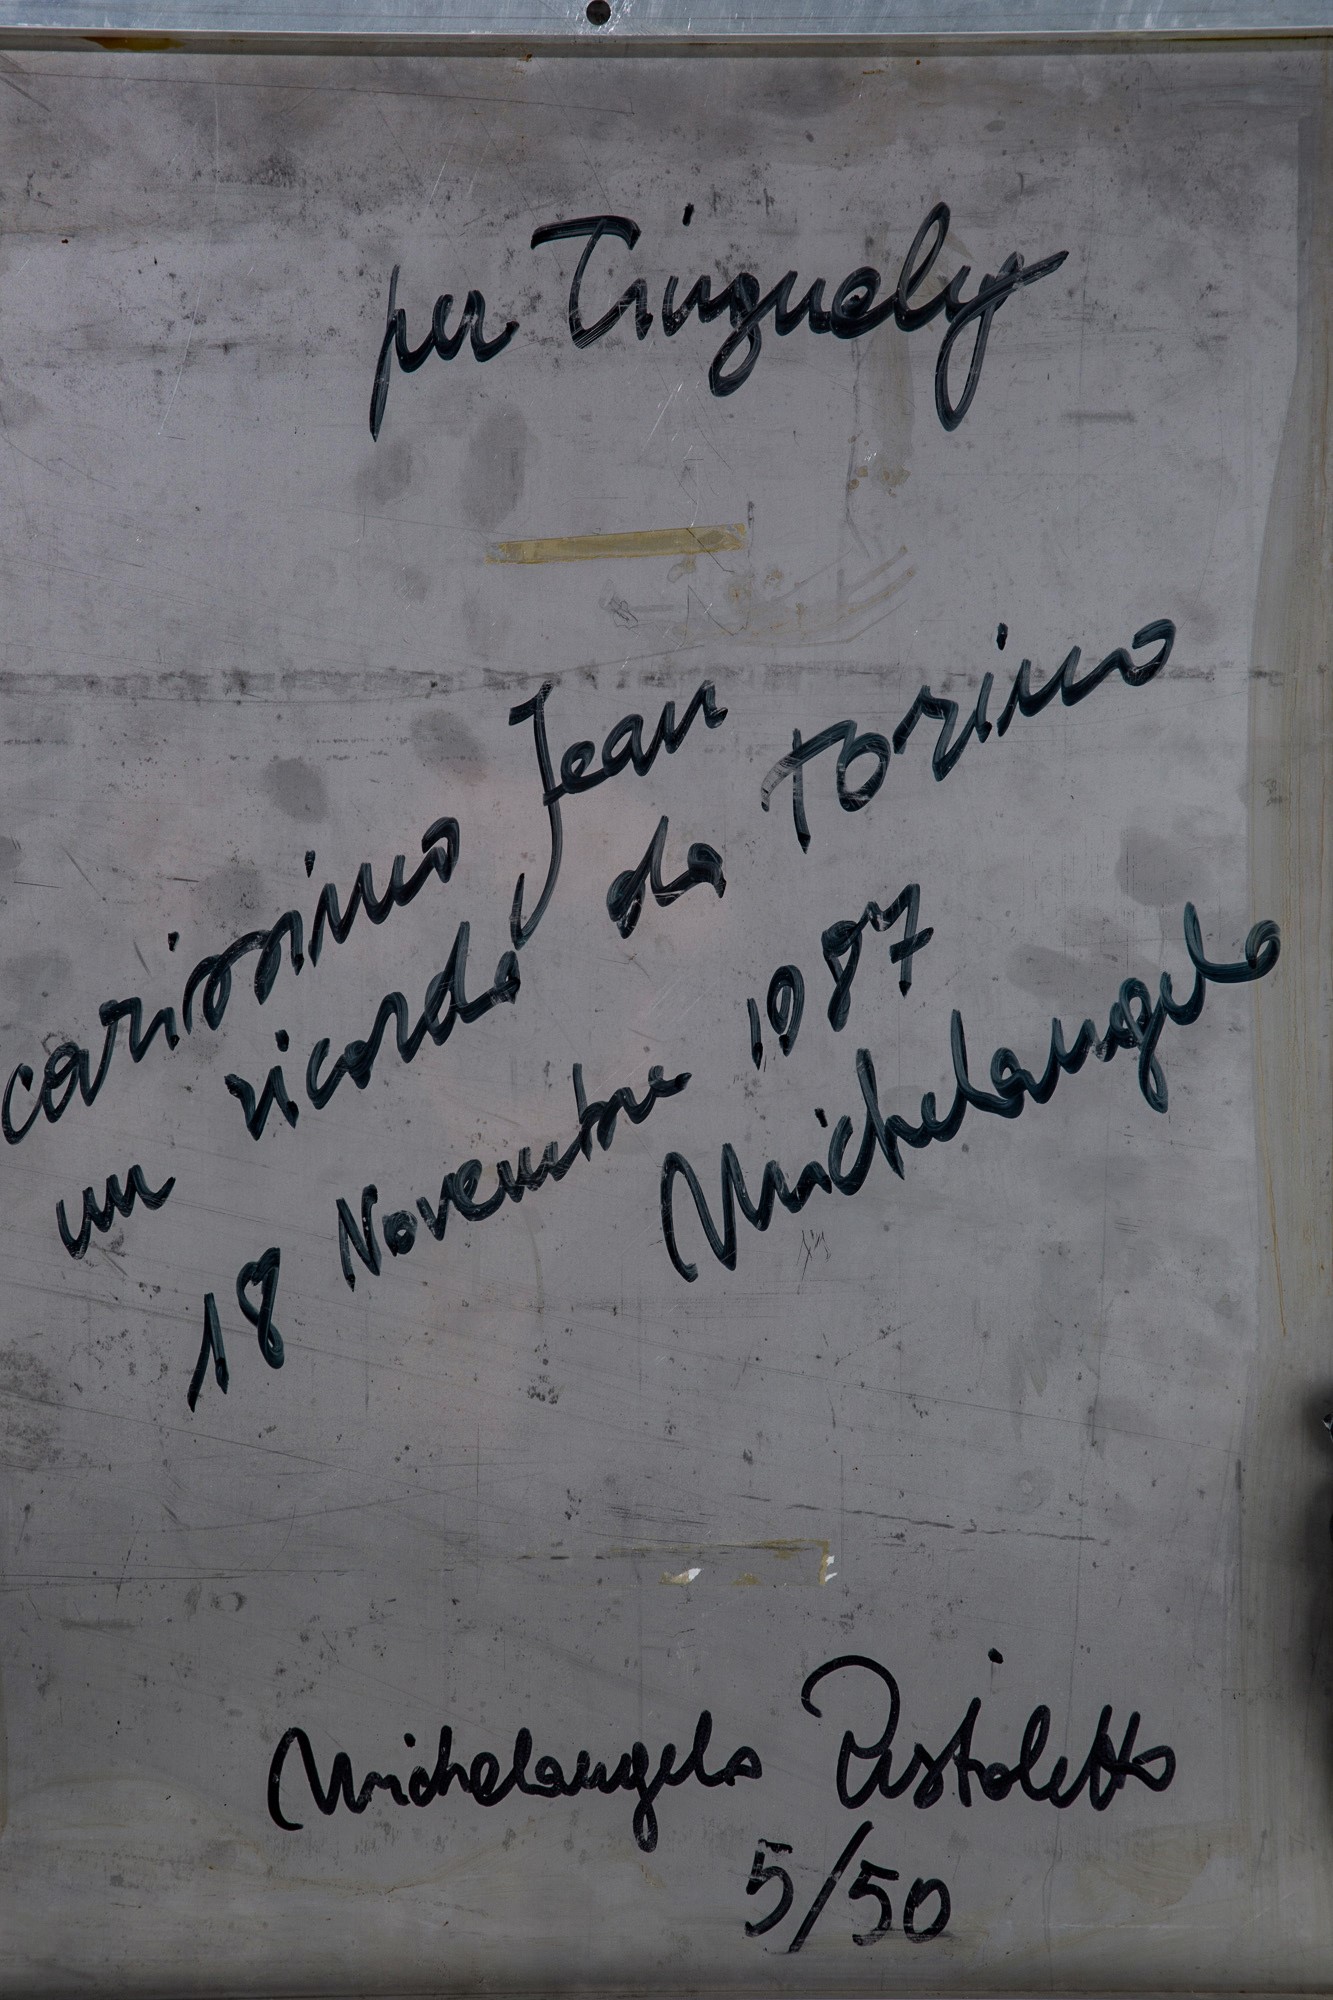 per Tinguely
carissimo Jean
un ricordo da Torino
18 Novembre 1987
Michelangelo
Michelangelo Pistoletto
5/50